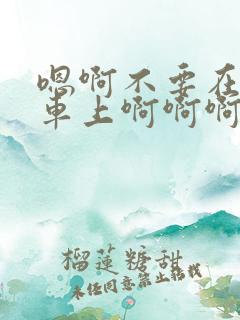 嗯啊不要在
車上啊啊啊
榴蓮糖甜
未经同意禁止转载